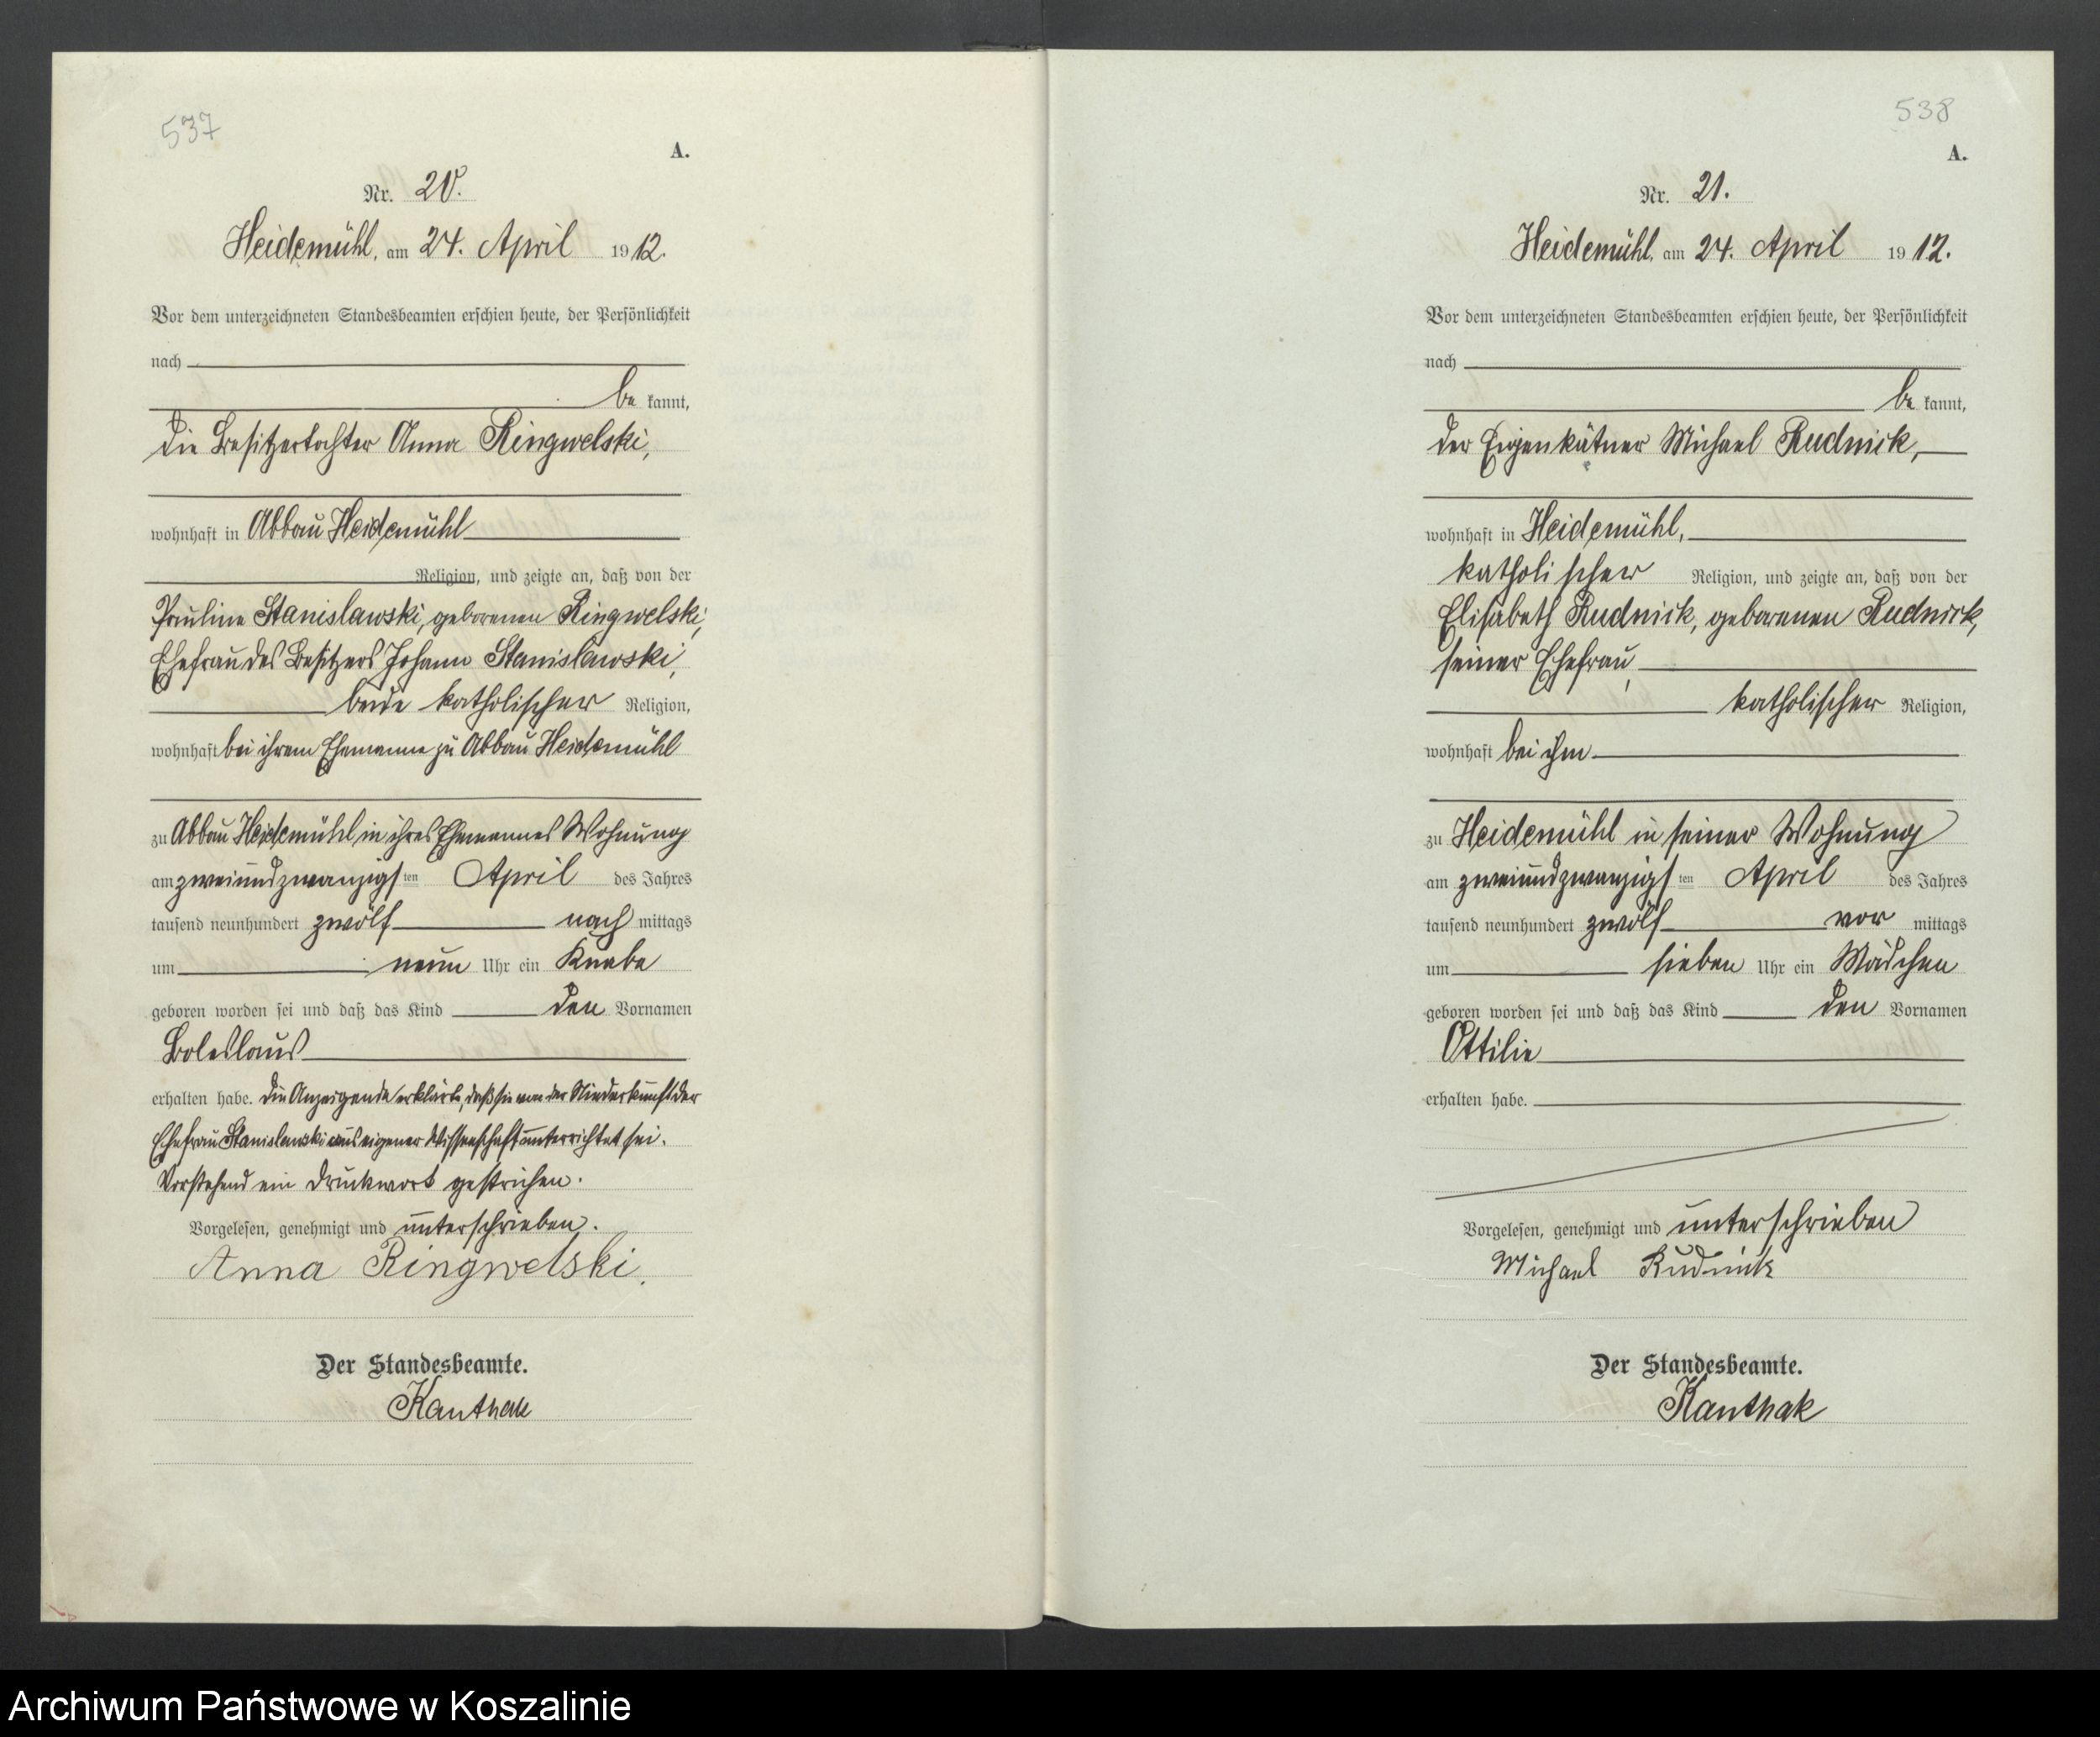 537
A.
Nr. 20.
Heidemühl, am 24. April 1912.
Vor dem unterzeichneten Standesbeamten erschien heute, der Persönlichkeit
nach
be kannt,
die Besitzertochter Anna Ringwelski,
wohnhaft in Abbau Heidemühl
Religion, und zeigte an, daß von der
Pauline Stanislawski, geborenen Ringwelski,
Ehefrau des Besitzers Johann Stanislawski,
beide katholischer Religion,
wohnhaft bei ihrem Ehemanne zu Abbau Heidemühl
zu Abbau Heidemühl in ihres Ehemannes Wohnung
am zweiundzwanzigsten April des Jahres
tausend neunhundert zwölf nach mittags
um neun Uhr ein Knabe
geboren worden sei und daß das Kind den Vornamen
Boleslaus
erhalten habe. Die Anzeigende erklärte, daß sie von der Niederkunft der
Ehefrau Stanislawski aus eigener Wissenschaft unterrichtet sei.
Vorstehend ein Druckwort gestrichen.
Vorgelesen, genehmigt und unterschrieben.
Anna Ringwelski.
Der Standesbeamte.
Kanthak
538
A.
Nr. 21.
Heidemühl, am 24. April 1912.
Vor dem unterzeichneten Standesbeamten erschien heute, der Persönlichkeit
nach
be kannt,
der Eigenkätner Michael Rudnick,
wohnhaft in Heidemühl,
katholischer Religion, und zeigte an, daß von der
Elisabeth Rudnick, geborenen Rudnick,
seiner Ehefrau,
katholischer Religion,
wohnhaft bei ihm
zu Heidemühl in seiner Wohnung
am zweiundzwanzigsten April des Jahres
tausend neunhundert zwölf vor mittags
um sieben Uhr ein Mädchen
geboren worden sei und daß das Kind den Vornamen
Ottilie
erhalten habe.
Vorgelesen, genehmigt und unterschrieben
Michael Rudnick
Der Standesbeamte.
Kanthak
Archiwum Państwowe w Koszalinie